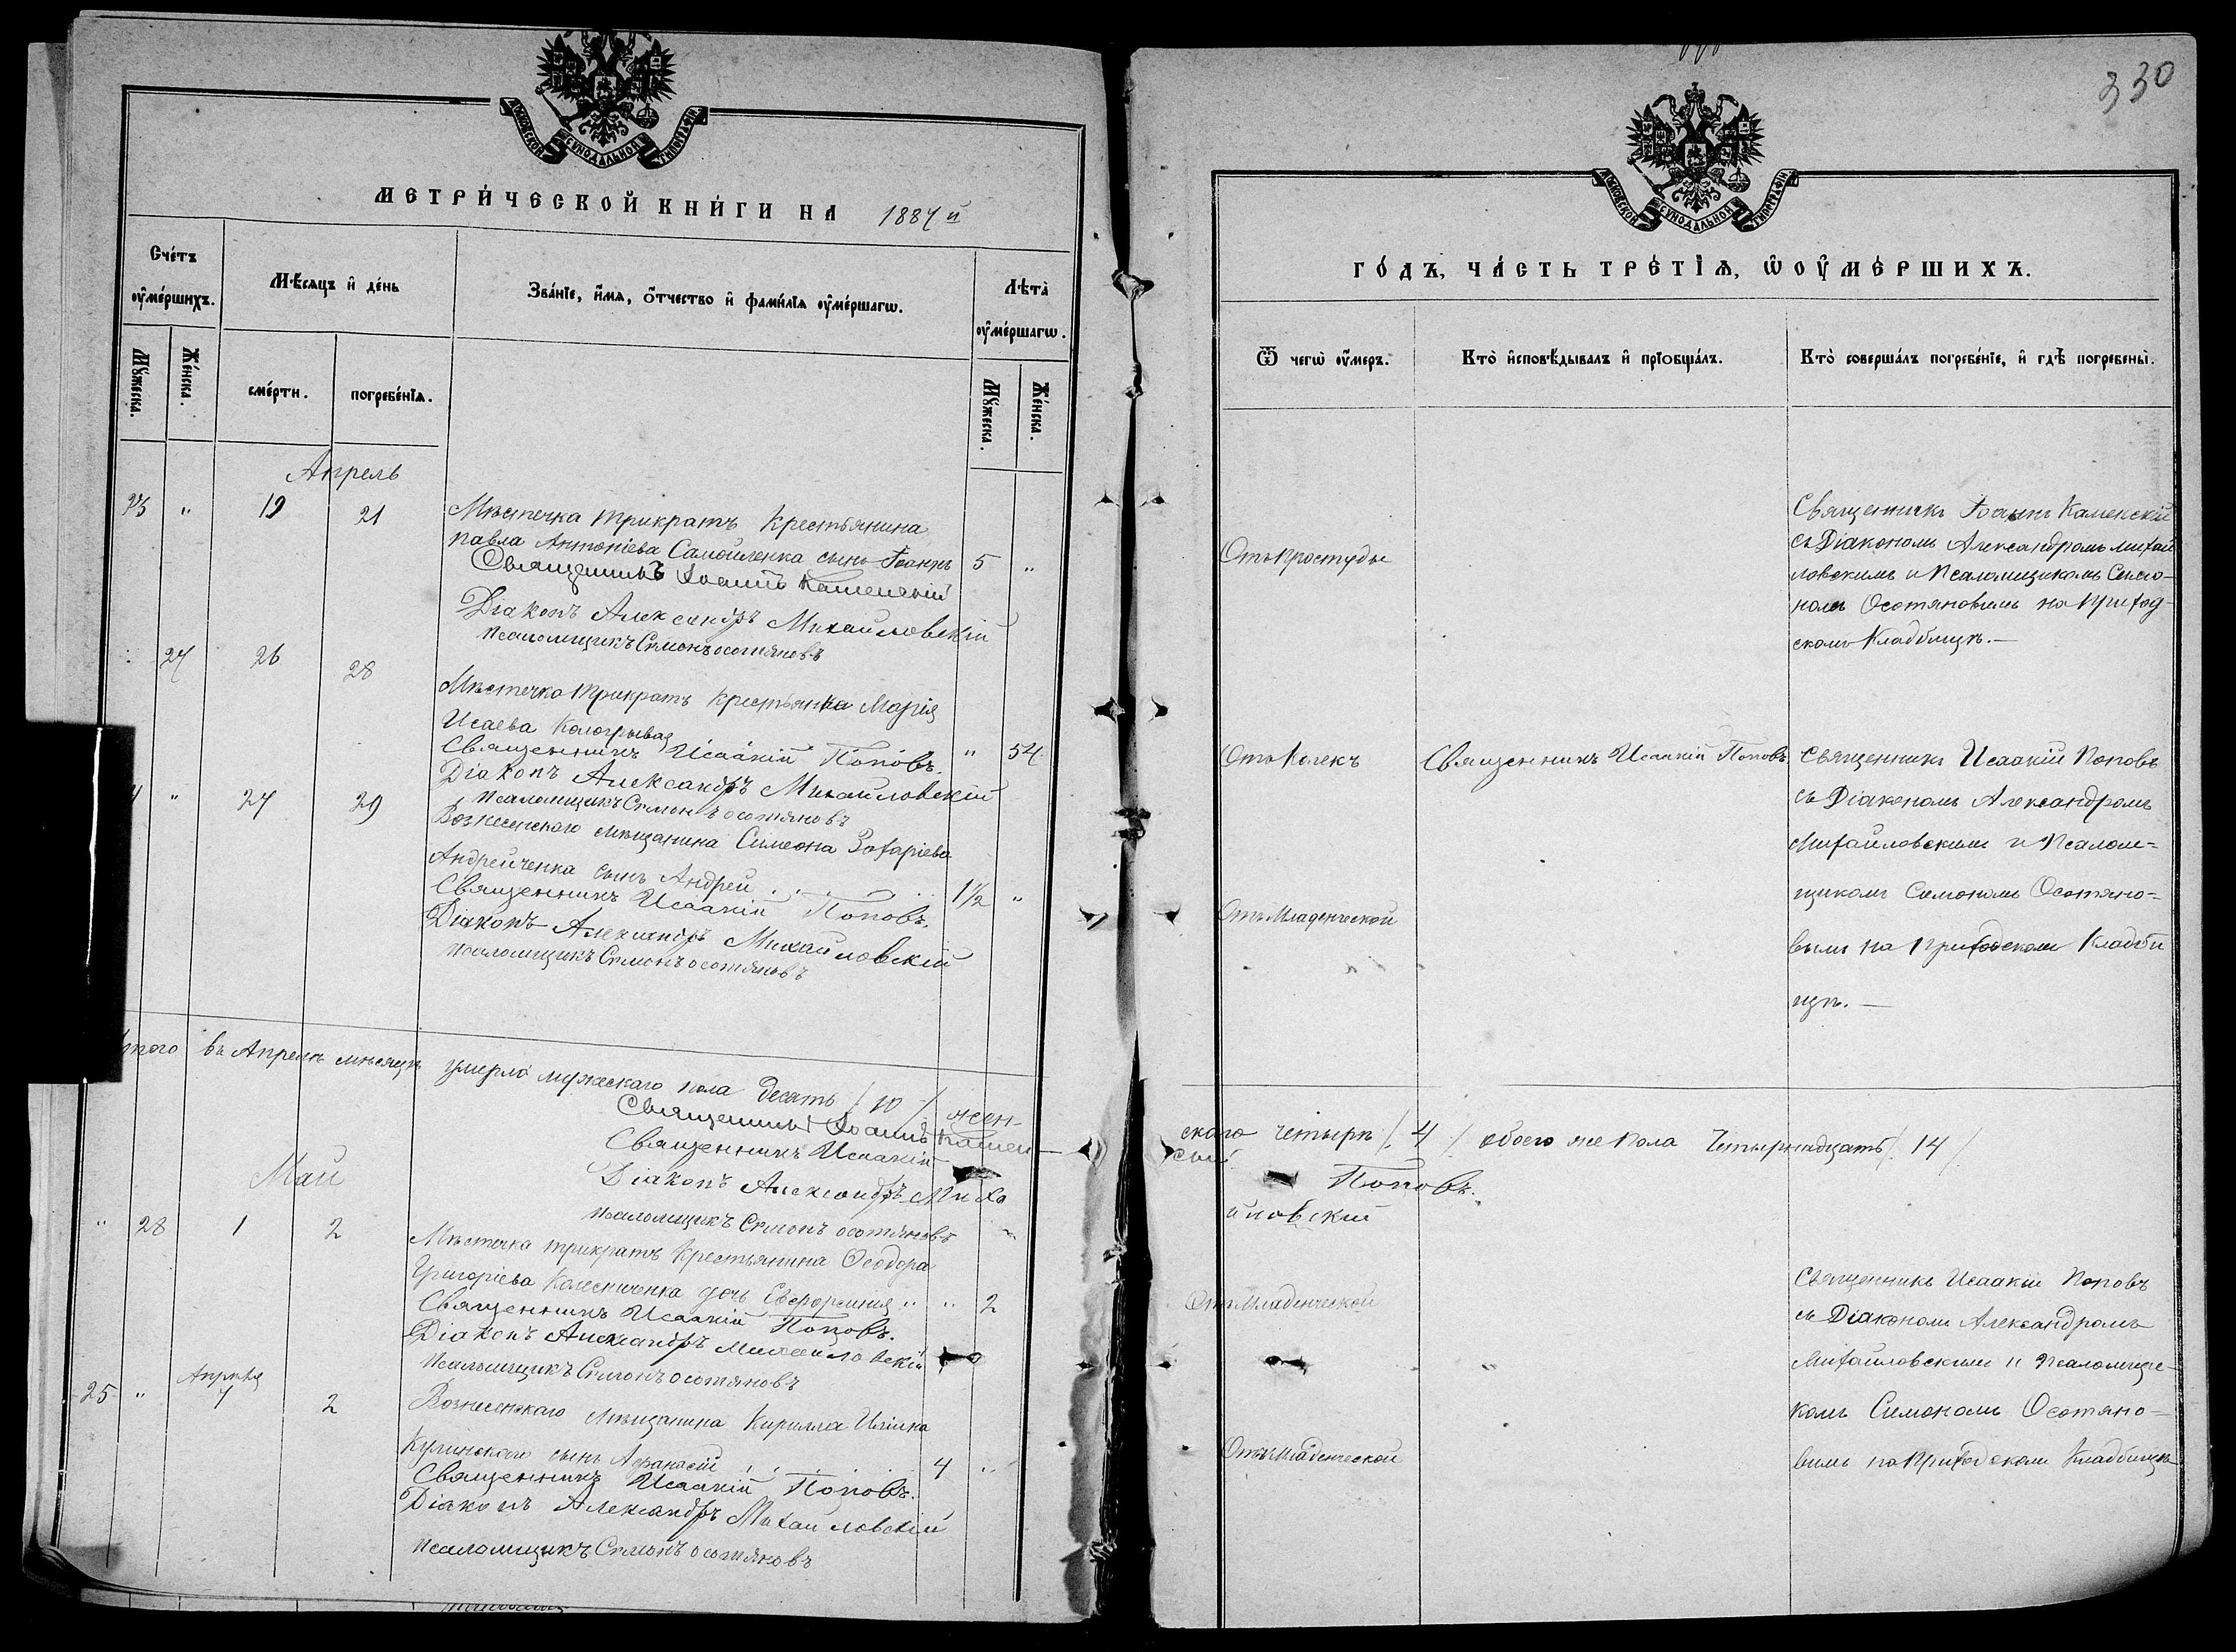 МОСКОВСКОЙ СУНОДАЛЬНОЙ ТИПОГРАФІИ
МЕТРИ́ЧЕСКОЙ КНИ́ГИ НА 1887 й
Сче́тъ оу҆ме́ршихъ.
Мѣ́сяцъ и҆ де́нь
Зва́нїе, и҆́мѧ, ѻ҆́тчество и҆ фами́лїѧ оу҆ме́ршагѡ.
Лѣта̀ оу҆ме́ршагѡ.
Мꙋ́жеска.
Же́нска.
сме́рти.
погребе́нїѧ.
Мꙋ́жеска.
Же́нска.
Апрель
23 " 19 21
Мѣстечка Трикратъ Крестьянина
Павла Антоніева Самойленка сынъ Іоаннъ 5 "
Священникъ Іоаннъ Каменскій
Діаконъ Александръ Михайловскій
Псаломщикъ Симонъ Осотяновъ
27 26 28
Мѣстечка Трикратъ Крестьянка Марія
Исаева Кологрывая
Священникъ Исаакій Поповъ. " 54
Діаконъ Александръ Михайловскій
Псаломщикъ Симонъ Осотяновъ
" 27 29
Вознесенскаго мѣщанина Симеона Захаріева
Андрейченка сынъ Андрей . . 1½ "
Священникъ Исаакій Поповъ.
Діаконъ Александръ Михайловскій
Псаломщикъ Симонъ Осотяновъ
Итого въ Апрелѣ мѣсяцѣ умерло мужескаго пола десять /10/ жен-
Священникъ Іоаннъ Камен
Священникъ Исаакій
Діаконъ Александръ Миха
Псаломщикъ Симонъ Осотяновъ
Май
" 28 1 2
Мѣстечка Трикратъ Крестьянина Ѳеодора
Григоріева Колесниченка дочь Евфросинія " " 2
Священникъ Исаакій Поповъ.
Діаконъ Александръ Михайловскій
Псаломщикъ Симонъ Осотяновъ
Апрѣля
25 " 7 2
Вознесенскаго Мѣщанина Кирилла
сынъ Афанасій . . . 4 "
Священникъ Исаакій Поповъ.
Діаконъ Александръ Михайловскій
Псаломщикъ Симонъ Осотяновъ
330
МОСКОВСКОЙ СУНОДАЛЬНОЙ ТИПОГРАФІИ
ГО́ДЪ, ЧА́СТЬ ТРЕ́ТЇѦ, Ѡ҆ ОУ҆МЕ́РШИХЪ.
Ѿ чегѡ̀ оу҆́меръ.
Кто̀ и҆сповѣ́дывалъ и҆ прїѻбща́лъ.
Кто̀ соверша́лъ погребе́нїе, и҆ гдѣ̀ погребены̀.
Отъ Простуды
Священникъ Іоаннъ Каменскій
съ Діакономъ Александромъ Михай
ловскимъ и Псаломщикомъ Симо-
номъ Осотяновымъ на Приход-
скомъ Кладбищѣ.—
Отъ Колекъ
Священникъ Исаакій Поповъ
Священникъ Исаакій Поповъ
съ Діакономъ Александромъ
Михайловскимъ и Псалом=
щикомъ Симономъ Осотяно=
вымъ на Приходскомъ Кладби
щѣ.—
Отъ Младенческой
скаго четыре /4/ обоего же пола Четырнадцать /14/
скій
Поповъ.
йловскій
Отъ Младенческой
Священникъ Исаакій Поповъ
съ Діакономъ Александромъ
Михайловскимъ и Псаломщи-
комъ Симономъ Осотяно=
вымъ на Приходскомъ Кладбищѣ
Отъ Младенческой